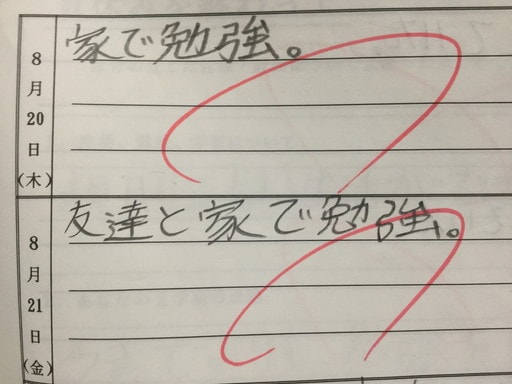 8月20日(木)
家で勉強。
8月21日(金)
友達と家で勉強。